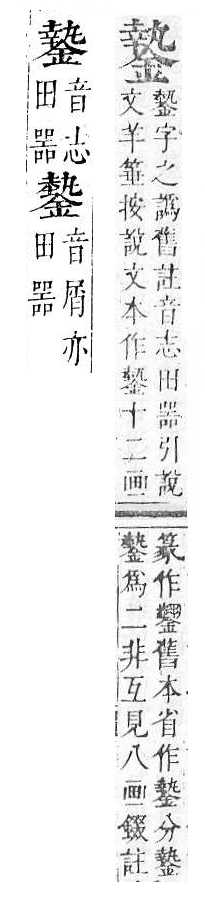 䥍字之譌舊註音志田器引說
文羊箠按說文本作䥍十二画
篆作舊本省作分
為二非互見八画錣註
音志
田器
音屑亦
田器